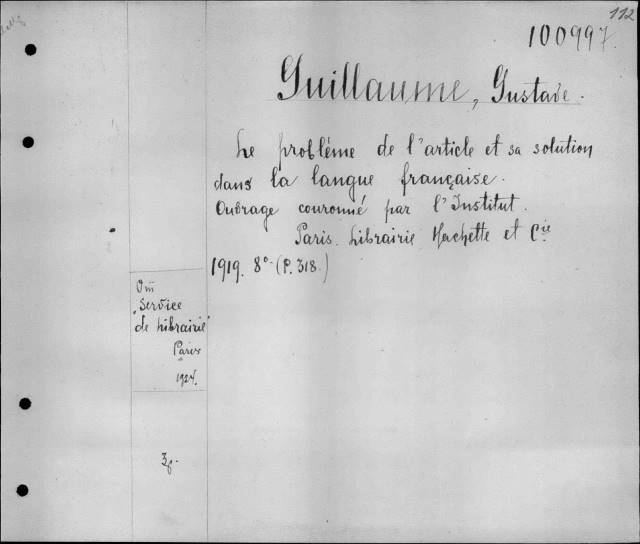 112
100997.
Guillaume, Gustave.
Le problème de l'article et sa solution
dans la langue française.
Ouvrage couronné par l'Institut.
Paris. Librairie Hachette et Cie
1919. 8° (P. 318.)
"Service
de Librairie"
Paris
1924.